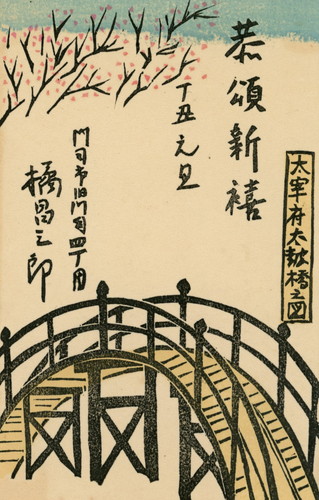 恭頌新禧
丁丑元旦
門司市旧門司四丁目
橘昌三郎
太宰府太鼓橋之図